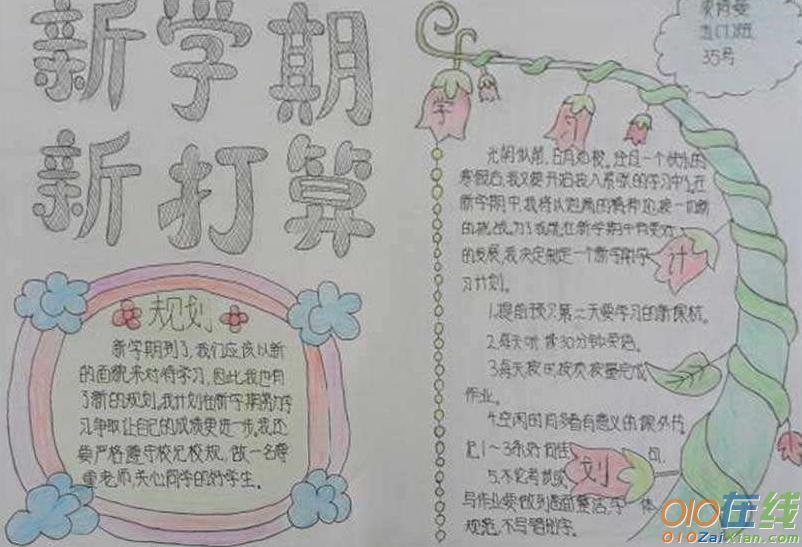 新学期
新打算
规划
新学期到了,我们应该以新
的面貌来对待学习,因此,我也有
了新的规划,我计划在新学期努力学
习,争取让自己的成绩更进一步,我还
要严格遵守校纪校规,做一名尊
重老师,关心同学的好学生。
五(1)班
35号
学
习
计
划
光阴似箭,日月如梭。
寒假后,我又要开始投入紧张的学习中了。在
新学期中,我将以饱满的精神迎接一切新
的挑战。为了我能在新学期中有更好
的发展,我决定制定一个新学期学
习计划。
1.提前预习第二天要学习的新课程。
2.每天听读30分钟英语。
3.每天按时按质按量完成
作业。
4.空闲的时多看有意义的课外书
记1~3条好词佳句。
5.不论考试或
写作业要做到卷面整洁,字体
规范,不写错别字。
010在线
010ZaiXian.com